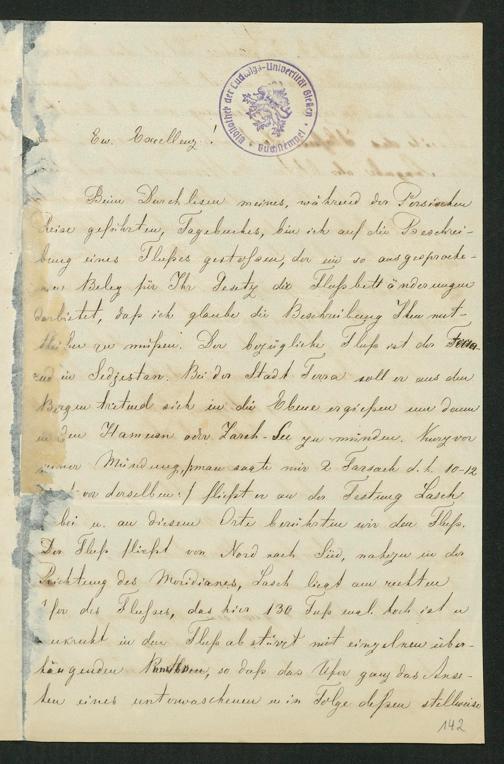 Bibliothek der Ludwigs-Universität Gießen
Buchstempel
Ew. Excellenz!
Beim Durchlesen meines, während der Persischen
Reise geführten, Tagebuches, bin ich auf die Beschrei-
bung eines Flußes gestoßen, der ein so ausgesproche-
ner Beleg für Ihr Gesetz die Flußbettänderungen
darbietet, daß ich glaube die Beschreibung Ihnen mit-
theilen zu müßen. Der bezügliche Fluß ist der
in Sedjestan. Bei der Stadt Ferra soll er aus den
Bergen tretend sich in die Ebene ergießen um dann
in den Hamean oder Zareh-See zu münden. Kurz vor
seiner Mündung, /:man sagte mir 2 Farsach d. h. 10-12
vor derselben:/ fließt er an der Festung Lasch
bei u. an diesem Orte berührten wir den Fluß.
Der Fluß fließt von Nord nach Süd, nahezu in der
Richtung des Meridianes, Lasch liegt am rechten
Ufer des Flußes, das hier 130 Fuß engl. hoch ist u
senkrecht in den Fluß abstürzt mit einzelnen über-
hängenden, so daß das Ufer ganz das Anse-
hen eines unterwaschenen u in Folge deßen stellweise
142